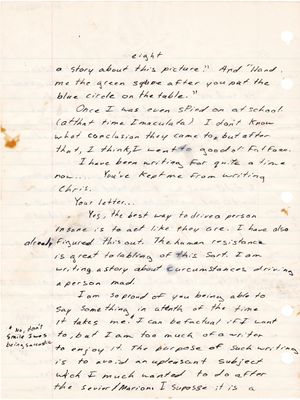 eight
a story about this picture?" And "Hand
me the green sqbue after you pat the
blue circle on the table."
Once I was even spied on at school.
(at that time Imaculate) I don't know
what conclusion they came to, but after
that, I think, I went to good ol'
I have been writing for quite a time
now.... You've kept me from writing
Chris.
Your letter...
Yes, the best way to drive a person
insane is to act like they are. I have also
already figured this out. The human resistance
is great to labling of this sort. I am
writing a story about circumstances driving
a person mad.
I am so proud of you being able to
say something in of the time
it takes me. I can be factual if I want
to, but I am too much of a writer
to enjoy it. The purpose of such writing
is to avoid an upleasant subject
wich I much wanted to do after
the Sevier/Marion. I suposse it is a
* No, don't
smile I was
being sarcastic